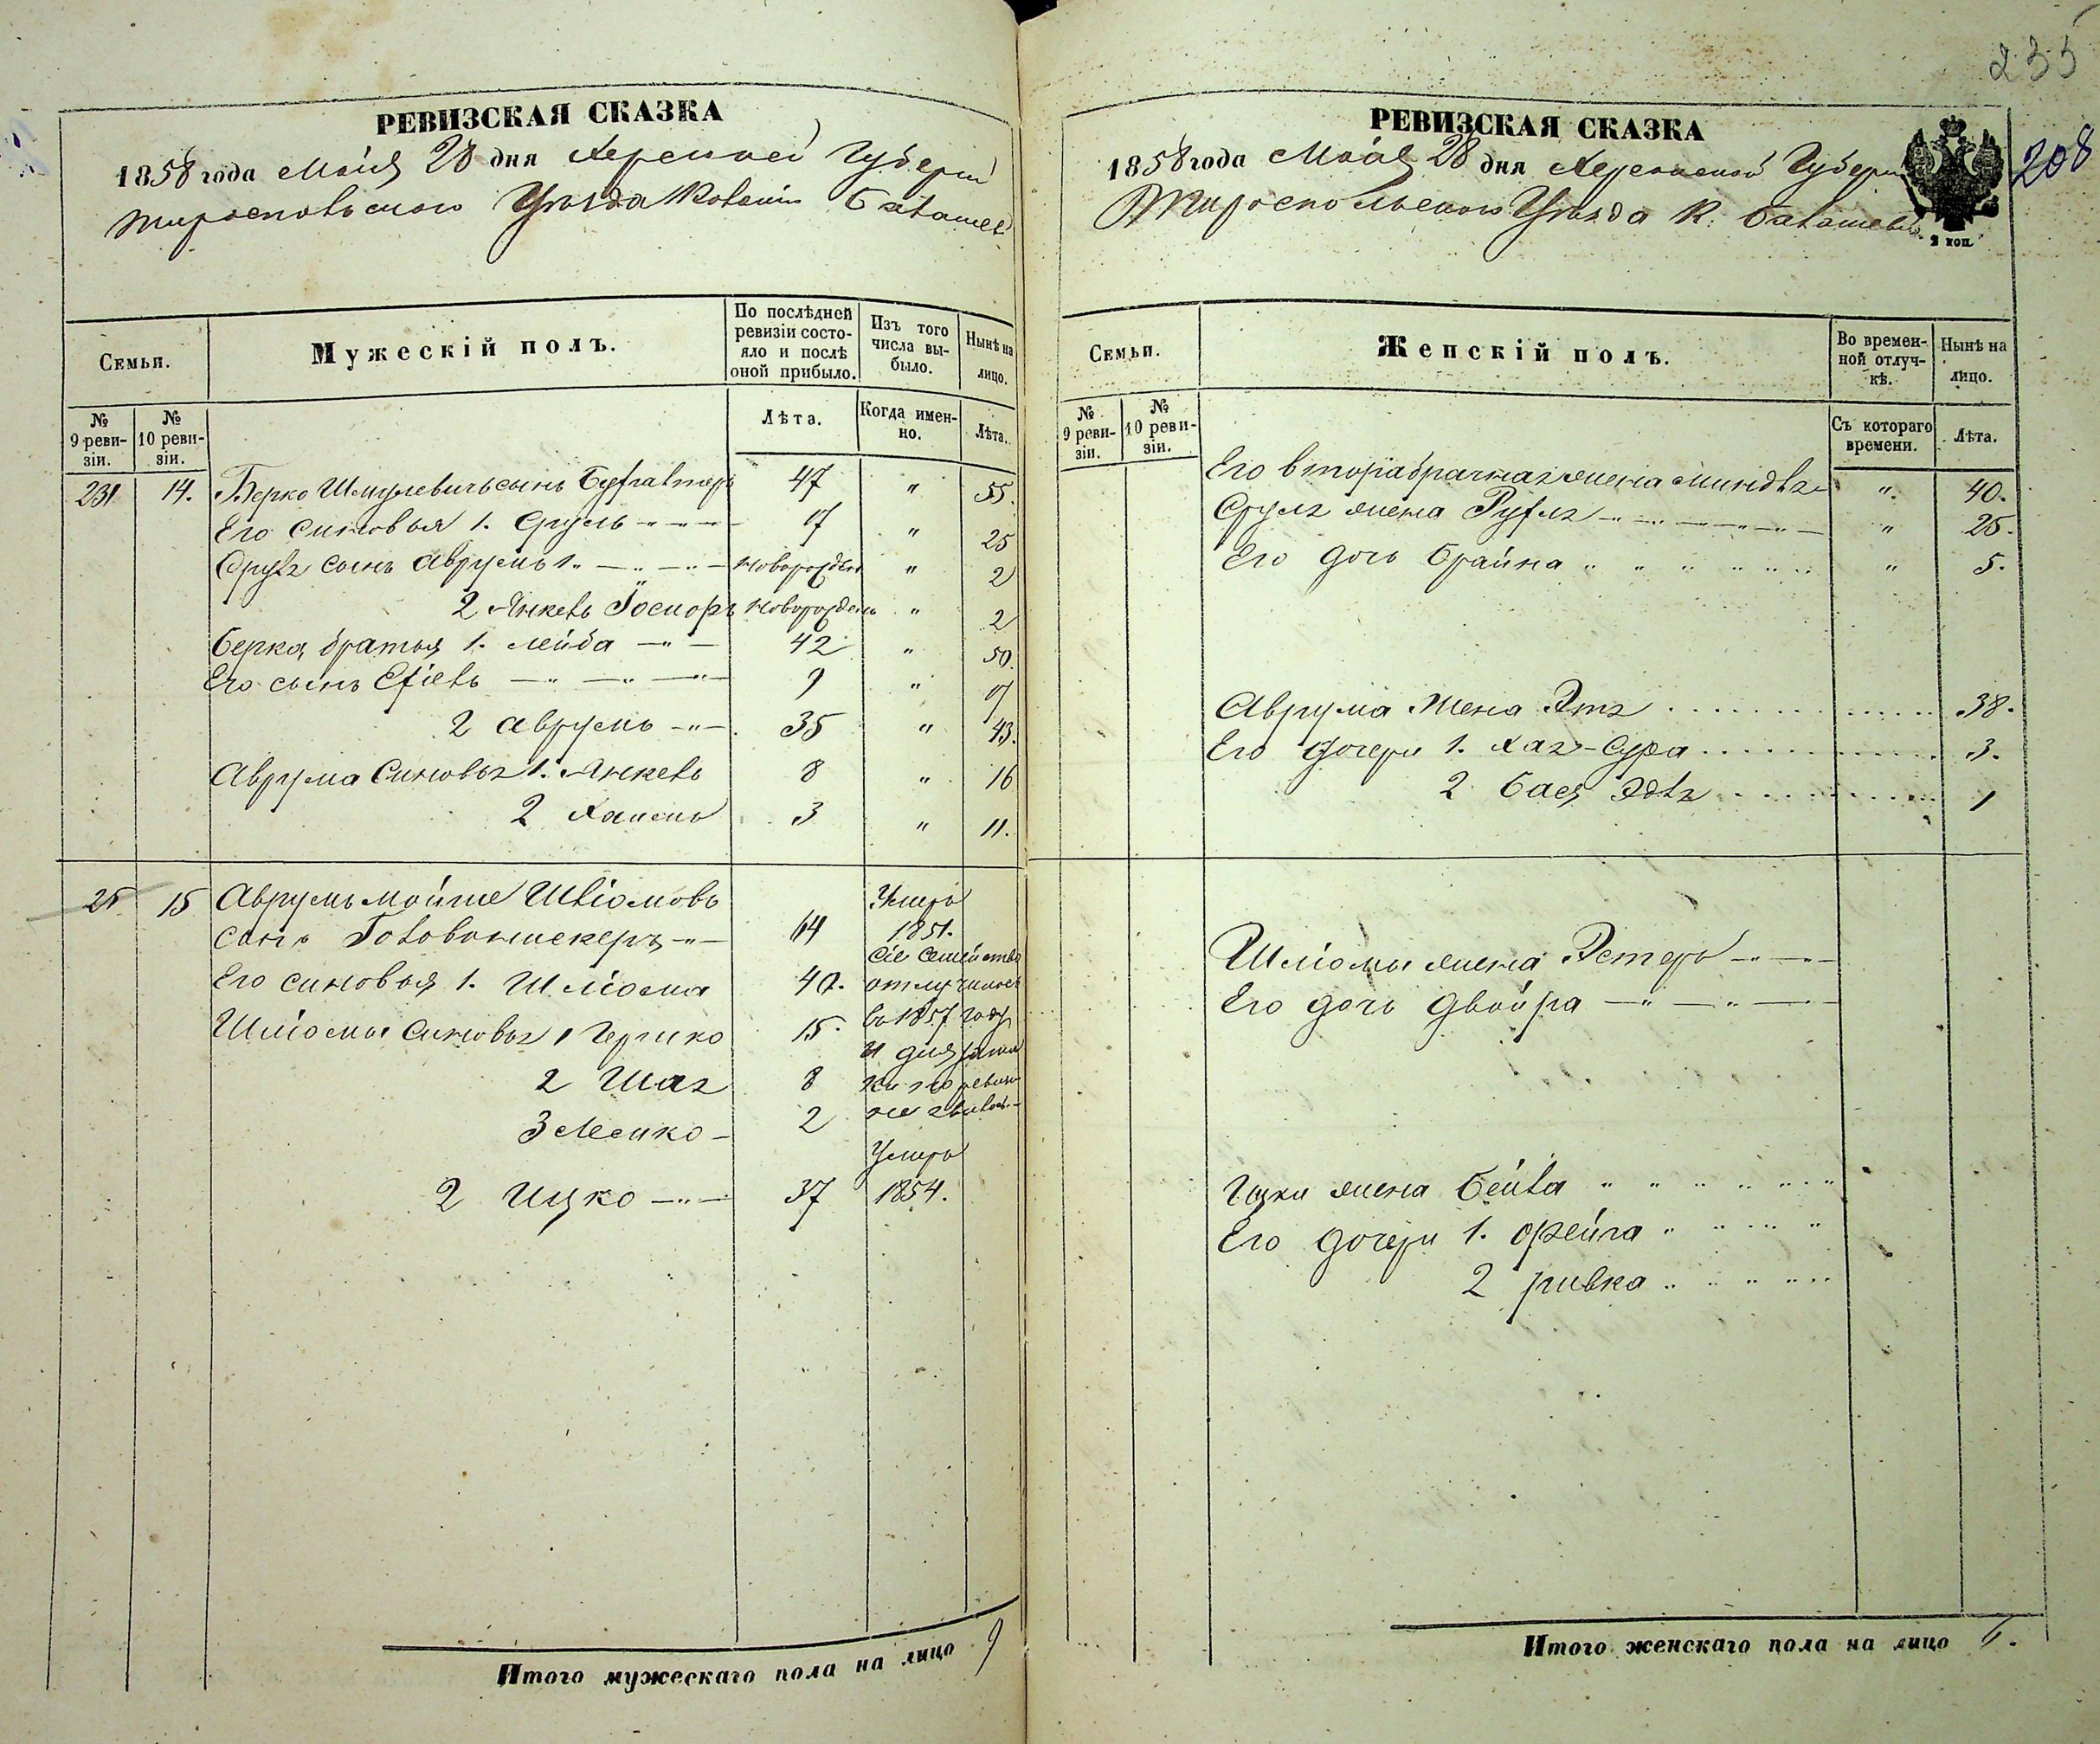 235
208
РЕВИЗСКАЯ СКАЗКА
1858 года Маія 28 дня Херсонской Губерніи
Тираспольского Уѣзда Колоніи
Семьи.
Мужескій полъ.
По послѣдней ревизіи состояло и послѣ оной прибыло.
Изъ того числа выбыло.
Нынѣ на лицо.
№ 9 ревизіи.
№ 10 ревизіи.
Лѣта.
Когда именно.
Лѣта.
231 14. Берко Шмулевичъ сынъ 47 " 55.
Его синовья 1. Сруль 17 " 25
Сруля сынъ Аврумъ 1. " 2
2 Янкель новорожден " 2
Берка братья 1. Лейба 42 " 50.
Его сынъ 9 " 17
2 Аврумъ 35 " 43.
Аврума Синовья 1. Янкель 8 " 16
2 Хаимъ 3 " 11.
25 15 Аврумъ Мойше Шліомовъ Умеръ
сынъ 64 1851.
Сіе Семейство
Его синовья 1. Шліома 40. отлучилось
Шліомы Синовья 1 Гершко 15. въ 1857 году
и для
2 Шая 8 ки по ревизи
3 Мешко 2 не явилось
Умеръ
2 Ицко 37 1854.
Итого мужескаго пола на лицо 9
РЕВИЗСКАЯ СКАЗКА
1858 года Маія 28 дня Херсонской Губерніи
Тираспольского Уѣзда К.
2 коп.
Семьи.
Женскій полъ.
Во временной отлучкѣ.
Нынѣ на лицо.
№ 9 ревизіи.
№ 10 ревизіи.
Съ котораго времени.
Лѣта.
Его вторабрачная жена Миндля " 40.
Сруля жена Рухля " 25.
Его дочь Брайна " 5.
Аврума Жена Этя 38.
Его дочери 1. Хая-Сура 3.
2 Бася Эдля 1
Шліомы жена Эстеръ
Его дочь Двойра
Ицки жена Бейла
Его дочери 1. Фейга
2 ривка
Итого женскаго пола на лицо 6.